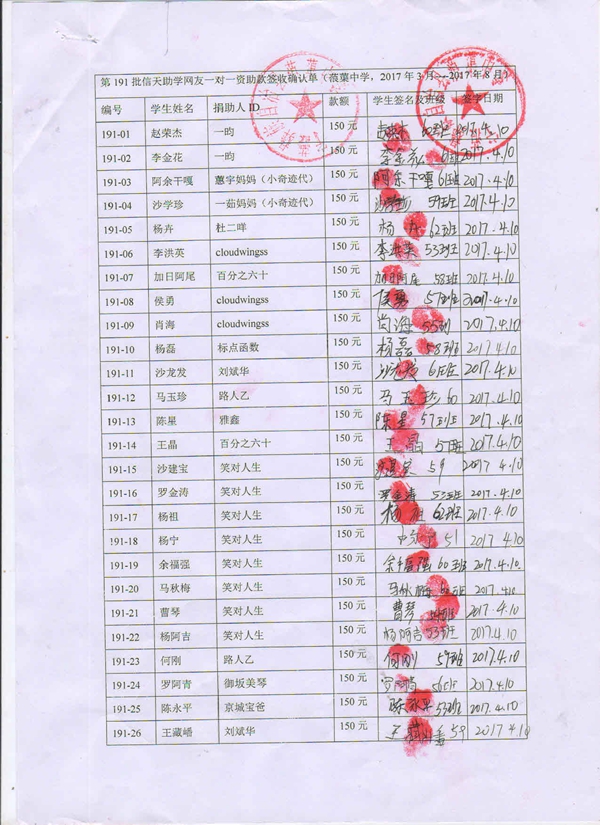 第 191 批信天助学网友一对一资助款签收确认单（菠萁中学，2017 年 3 月—2017 年 8 月）
编号 学生姓名 捐助人 ID 款额 学生签名及班级 签字日期
191-01 赵荣杰 一昀 150 元 60班 2017.4.10
191-02 李金花 一昀 150 元 李金花 2017.4.10
191-03 阿余干嘎 蕙宇妈妈（小奇迹代） 150 元 阿余干嘎 61班 2017.4.10
191-04 沙学珍 一茹妈妈（小奇迹代） 150 元 沙学珍 59班 2017.4.10
191-05 杨卉 杜二咩 150 元 杨卉 62班 2017.4.10
191-06 李洪英 cloudwingss 150 元 李洪英 53班 2017.4.10
191-07 加日阿尾 百分之六十 150 元 加日阿尾 58班 2017.4.10
191-08 侯勇 cloudwingss 150 元 侯勇 57班 2017.4.10
191-09 肖海 cloudwingss 150 元 肖海 55班 2017.4.10
191-10 杨磊 标点函数 150 元 杨磊 58班 2017.4.10
191-11 沙龙发 刘斌华 150 元 沙龙发 2017.4.10
191-12 马玉珍 路人乙 150 元 马玉珍 60 2017.4.10
191-13 陈星 雅鑫 150 元 陈星 57班 2017.4.10
191-14 王晶 百分之六十 150 元 王晶 57班 2017.4.10
191-15 沙建宝 笑对人生 150 元 59 2017 4.10
191-16 罗金涛 笑对人生 150 元 罗金涛 53班 2017.4.10
191-17 杨祖 笑对人生 150 元 杨祖 62班 2017.4.10
191-18 杨宁 笑对人生 150 元 51 2017 4.10
191-19 余福强 笑对人生 150 元 余福强 60班 2017.4.10
191-20 马秋梅 笑对人生 150 元 马秋梅 2017.4.10
191-21 曹琴 笑对人生 150 元 曹琴 2017.4.10
191-22 杨阿吉 笑对人生 150 元 杨阿吉 53班 2017.4.10
191-23 何刚 路人乙 150 元 何刚 59班 2017.4.10
191-24 罗阿青 御坂美琴 150 元 56班 2017.4.10
191-25 陈永平 京城宝爸 150 元 陈永平 53班 2017.4.10
191-26 王藏嶓 刘斌华 150 元 59 2017 4.10